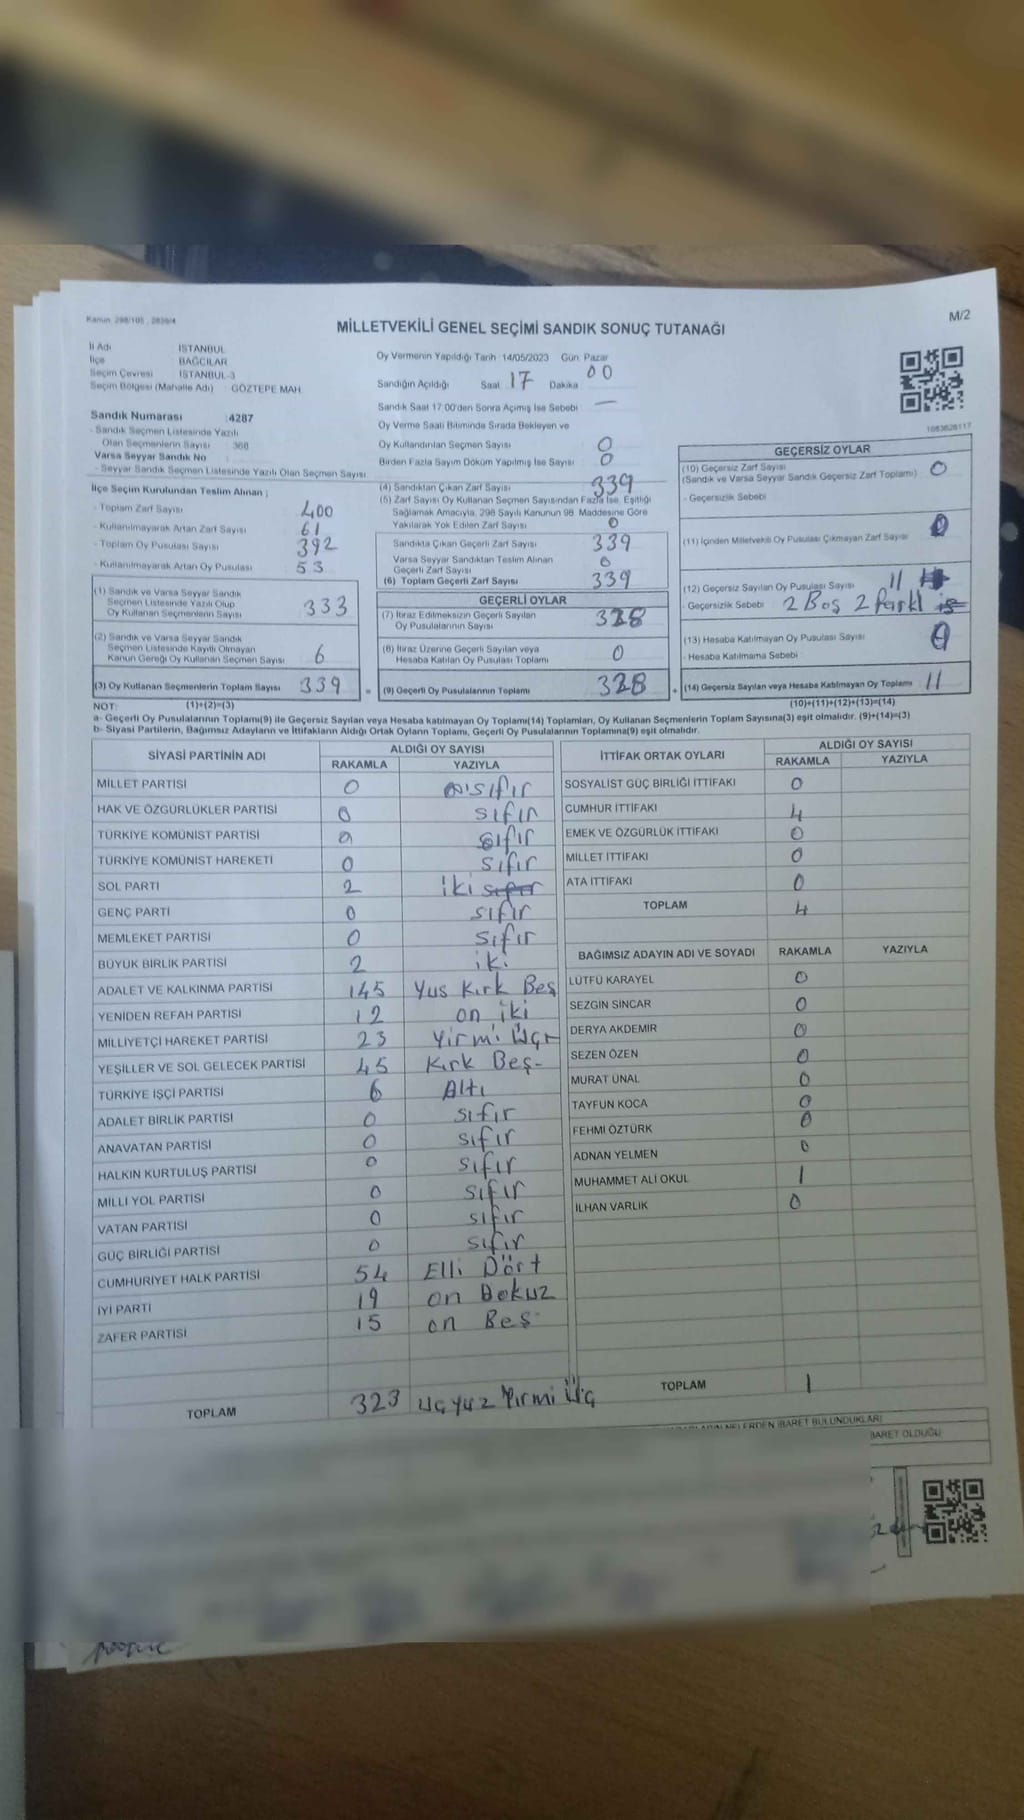 Kanun 298/105 , 2839/4
M/2
MİLLETVEKİLİ GENEL SEÇİMİ SANDIK SONUÇ TUTANAĞI
İl Adı İSTANBUL
İlçe BAĞCILAR
Seçim Çevresi İSTANBUL-3
Seçim Bölgesi (Mahalle Adı) GÖZTEPE MAH.
Sandık Numarası :4287
- Sandık Seçmen Listesinde Yazılı
Olan Seçmenlerin Sayısı : 368
Varsa Seyyar Sandık No
- Seyyar Sandık Seçmen Listesinde Yazılı Olan Seçmen Sayısı
İlçe Seçim Kurulundan Teslim Alınan ;
- Toplam Zarf Sayısı 400
- Kullanılmayarak Artan Zarf Sayısı 61
- Toplam Oy Pusulası Sayısı 392
- Kullanılmayarak Artan Oy Pusulası 53
(1) Sandık ve Varsa Seyyar Sandık
Seçmen Listesinde Yazılı Olup
Oy Kullanan Seçmenlerin Sayısı 333
(2) Sandık ve Varsa Seyyar Sandık
Seçmen Listesinde Kayıtlı Olmayan
Kanun Gereği Oy Kullanan Seçmen Sayısı 6
(3) Oy Kullanan Seçmenlerin Toplam Sayısı 339
Oy Vermenin Yapıldığı Tarih :14/05/2023 Gün: Pazar
Sandığın Açıldığı Saat 17 Dakika 00
Sandık Saat 17:00'den Sonra Açılmış İse Sebebi —
Oy Verme Saati Bitiminde Sırada Bekleyen ve
Oy Kullandırılan Seçmen Sayısı 0
Birden Fazla Sayım Döküm Yapılmış İse Sayısı 0
(4) Sandıktan Çıkan Zarf Sayısı 339
(5) Zarf Sayısı Oy Kullanan Seçmen Sayısından Fazla İse, Eşitliği
Sağlamak Amacıyla, 298 Sayılı Kanunun 98. Maddesine Göre
Yakılarak Yok Edilen Zarf Sayısı 0
Sandıkta Çıkan Geçerli Zarf Sayısı 339
Varsa Seyyar Sandıktan Teslim Alınan
Geçerli Zarf Sayısı 0
(6) Toplam Geçerli Zarf Sayısı 339
GEÇERLİ OYLAR
(7) İtiraz Edilmeksizin Geçerli Sayılan
Oy Pusulalarının Sayısı 328
(8) İtiraz Üzerine Geçerli Sayılan veya
Hesaba Katılan Oy Pusulası Toplamı 0
= (9) Geçerli Oy Pusulalarının Toplamı 328
1083828117
GEÇERSİZ OYLAR
(10) Geçersiz Zarf Sayısı 0
(Sandık ve Varsa Seyyar Sandık Geçersiz Zarf Toplamı)
- Geçersizlik Sebebi
(11) İçinden Milletvekili Oy Pusulası Çıkmayan Zarf Sayısı 0
(12) Geçersiz Sayılan Oy Pusulası Sayısı 11
- Geçersizlik Sebebi 2 Boş 2 farklı
(13) Hesaba Katılmayan Oy Pusulası Sayısı 0
- Hesaba Katılmama Sebebi
+ (14) Geçersiz Sayılan veya Hesaba Katılmayan Oy Toplamı 11
NOT: (1)+(2)=(3) (10)+(11)+(12)+(13)=(14)
a- Geçerli Oy Pusulalarının Toplamı(9) ile Geçersiz Sayılan veya Hesaba katılmayan Oy Toplamı(14) Toplamları, Oy Kullanan Seçmenlerin Toplam Sayısına(3) eşit olmalıdır. (9)+(14)=(3)
b- Siyasi Partilerin, Bağımsız Adayların ve İttifakların Aldığı Ortak Oyların Toplamı, Geçerli Oy Pusulalarının Toplamına(9) eşit olmalıdır.
SİYASİ PARTİNİN ADI ALDIĞI OY SAYISI
RAKAMLA YAZIYLA
MİLLET PARTİSİ 0 sıfır
HAK VE ÖZGÜRLÜKLER PARTİSİ 0 sıfır
TÜRKİYE KOMÜNİST PARTİSİ 0 sıfır
TÜRKİYE KOMÜNİST HAREKETİ 0 sıfır
SOL PARTİ 2 iki sıfır
GENÇ PARTİ 0 sıfır
MEMLEKET PARTİSİ 0 sıfır
BÜYÜK BİRLİK PARTİSİ 2 iki
ADALET VE KALKINMA PARTİSİ 145 Yus Kırk Beş
YENİDEN REFAH PARTİSİ 12 on iki
MİLLİYETÇİ HAREKET PARTİSİ 23 Yirmi Üç
YEŞİLLER VE SOL GELECEK PARTİSİ 45 Kırk Beş-
TÜRKİYE İŞÇİ PARTİSİ 6 Altı
ADALET BİRLİK PARTİSİ 0 sıfır
ANAVATAN PARTİSİ 0 sıfır
HALKIN KURTULUŞ PARTİSİ 0 sıfır
MİLLİ YOL PARTİSİ 0 sıfır
VATAN PARTİSİ 0 sıfır
GÜÇ BİRLİĞİ PARTİSİ 0 sıfır
CUMHURİYET HALK PARTİSİ 54 Elli Dört
İYİ PARTİ 19 on Dokuz
ZAFER PARTİSİ 15 on Beş
TOPLAM 323 üçyuz Yirmi Üç
İTTİFAK ORTAK OYLARI ALDIĞI OY SAYISI
RAKAMLA YAZIYLA
SOSYALİST GÜÇ BİRLİĞİ İTTİFAKI 0
CUMHUR İTTİFAKI 4
EMEK VE ÖZGÜRLÜK İTTİFAKI 0
MİLLET İTTİFAKI 0
ATA İTTİFAKI 0
TOPLAM 4
BAĞIMSIZ ADAYIN ADI VE SOYADI RAKAMLA YAZIYLA
LÜTFÜ KARAYEL 0
SEZGİN SİNCAR 0
DERYA AKDEMİR 0
SEZEN ÖZEN 0
MURAT ÜNAL 0
TAYFUN KOCA 0
FEHMİ ÖZTÜRK 0
ADNAN YELMEN 0
MUHAMMET ALİ OKUL 1
İLHAN VARLIK 0
TOPLAM 1
NELERDEN İBARET BULUNDUKLARI
BARET OLDUĞU